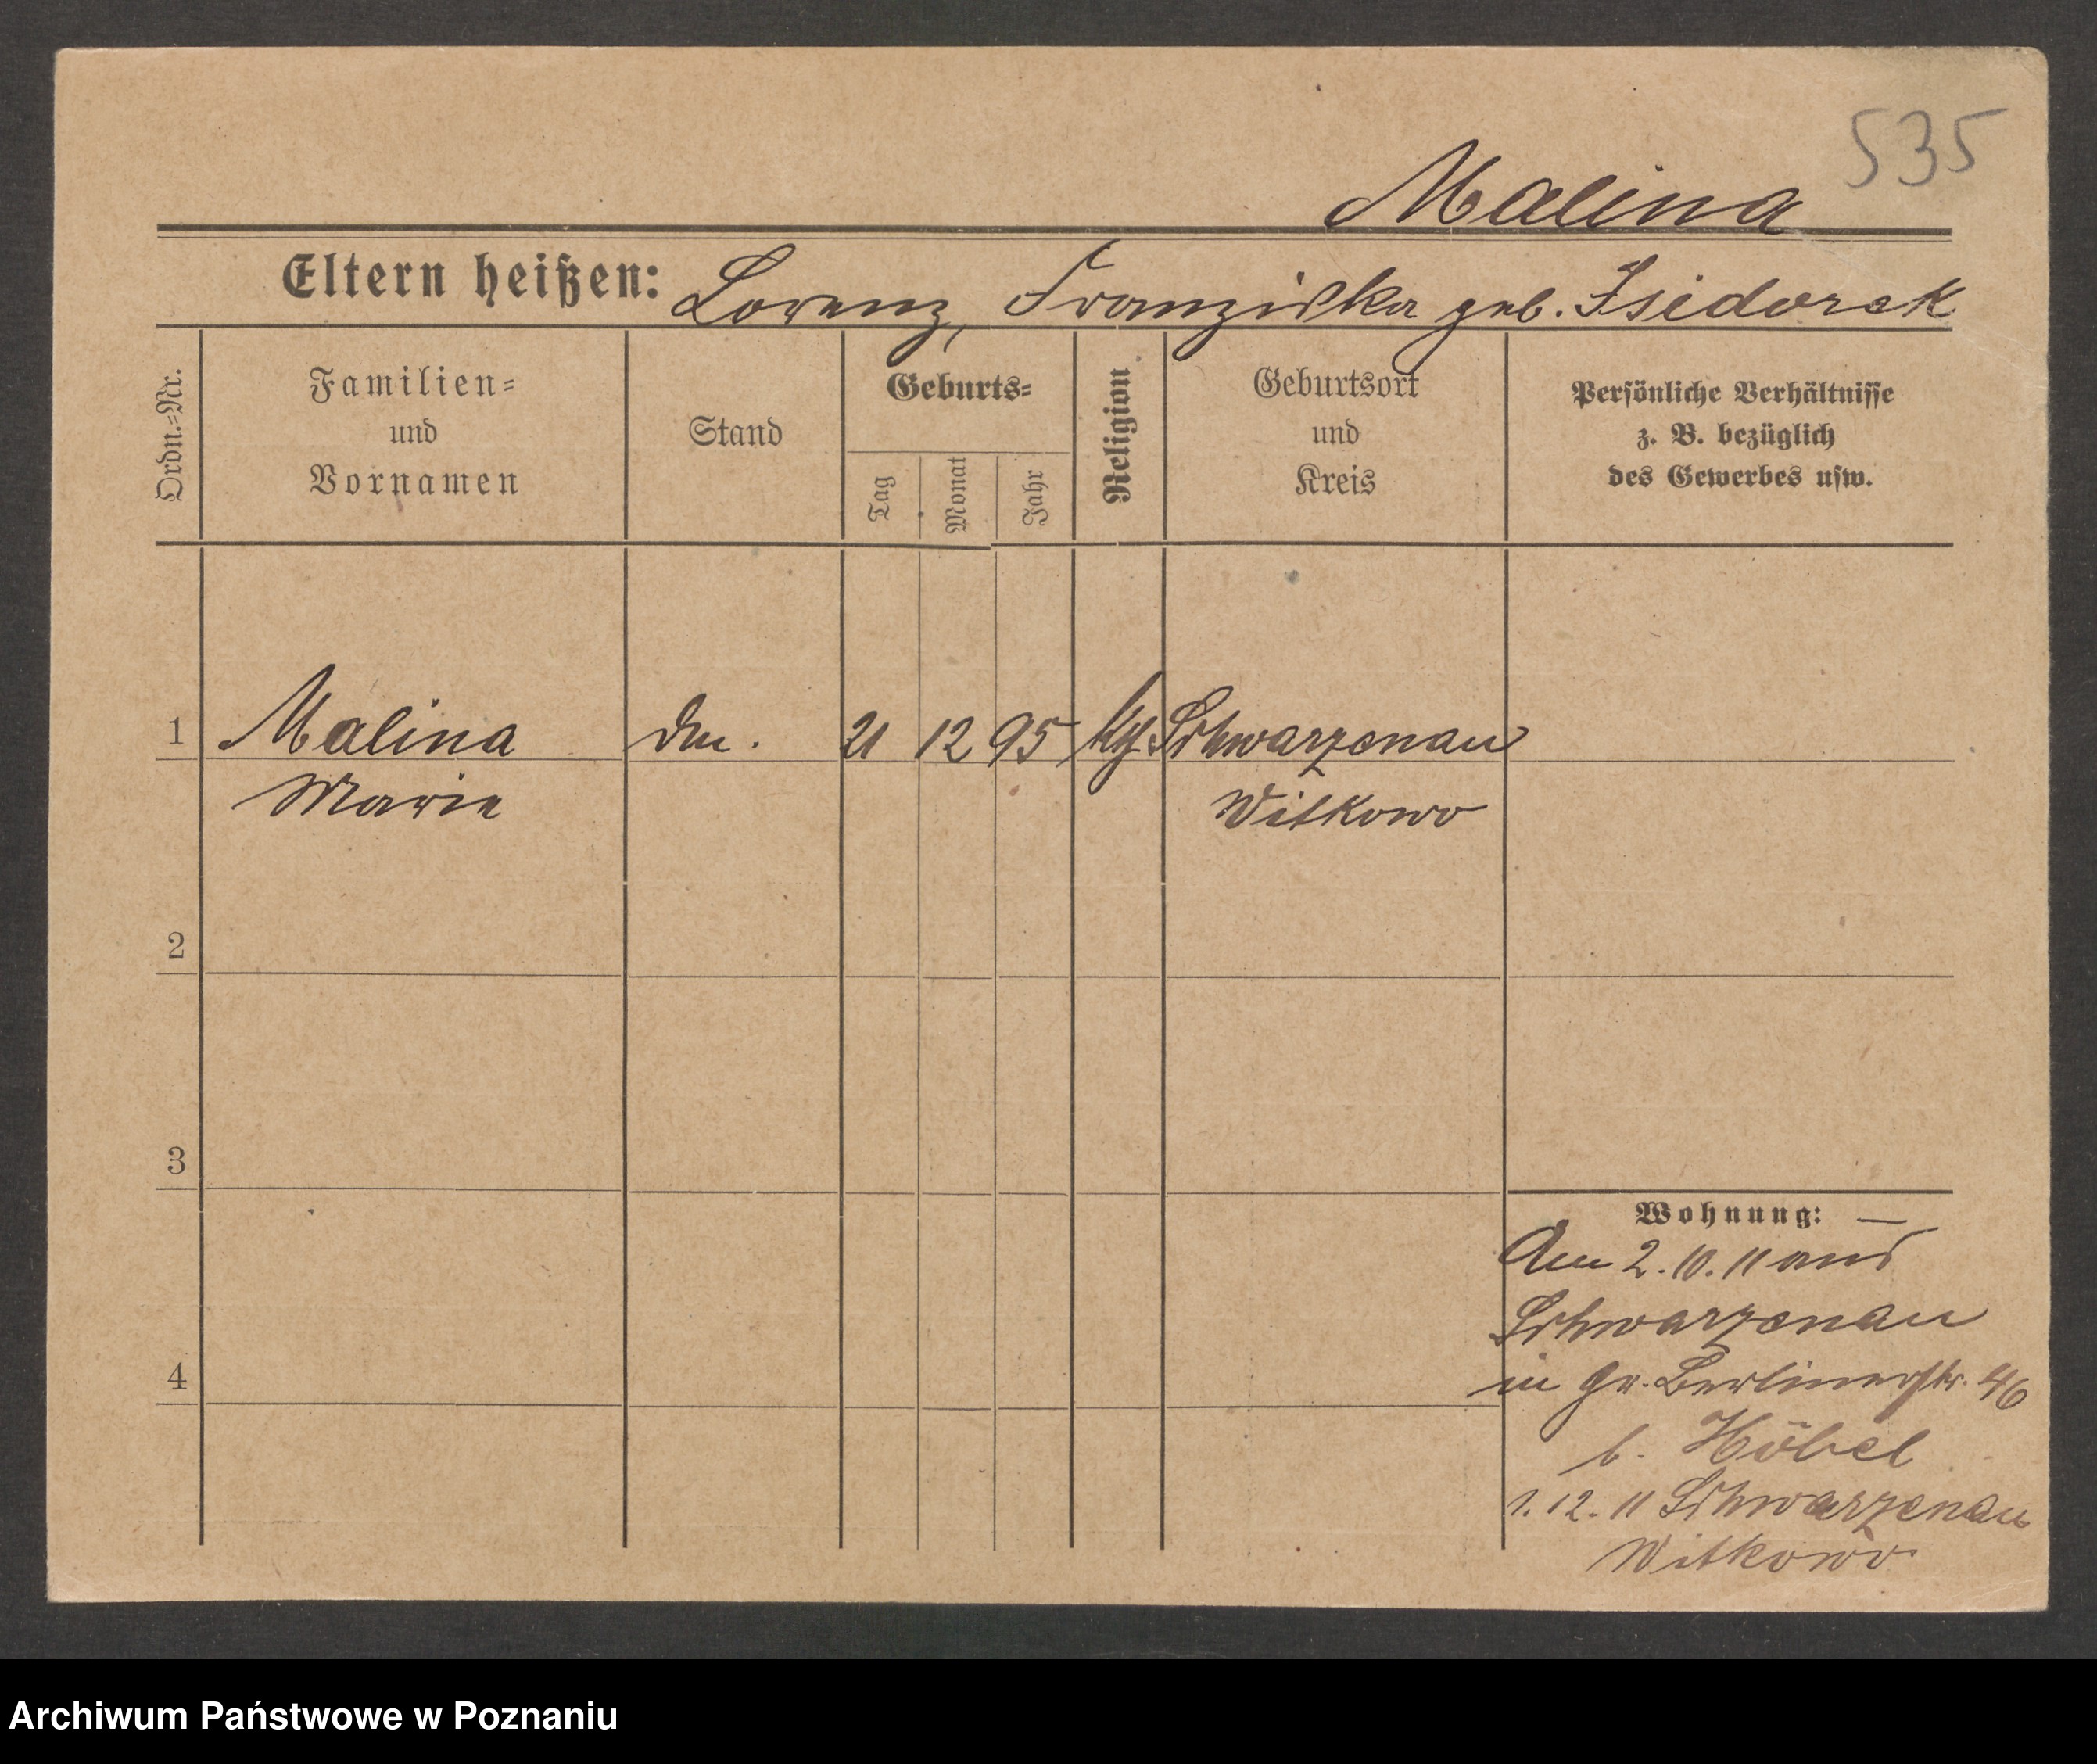 535
Malina
Eltern heißen: Lorenz, Franziska geb. Isidorek
Ordn.=Nr.
Familien=
und
Vornamen
Stand
Geburts=
Tag
Monat
Jahr
Religion
Geburtsort
und
Kreis
Persönliche Verhältnisse
z. B. bezüglich
des Gewerbes usw.
1 Malina 21 12 95 Schwarzenau
Marie Witkowo
2
3
Wohnung: —
Am 2.10.11 aus
Schwarzenau
4
in Gr. Berlinerstr. 46
b. Höbel
1.12.11 Schwarzenau
Witkowo
Archiwum Państwowe w Poznaniu